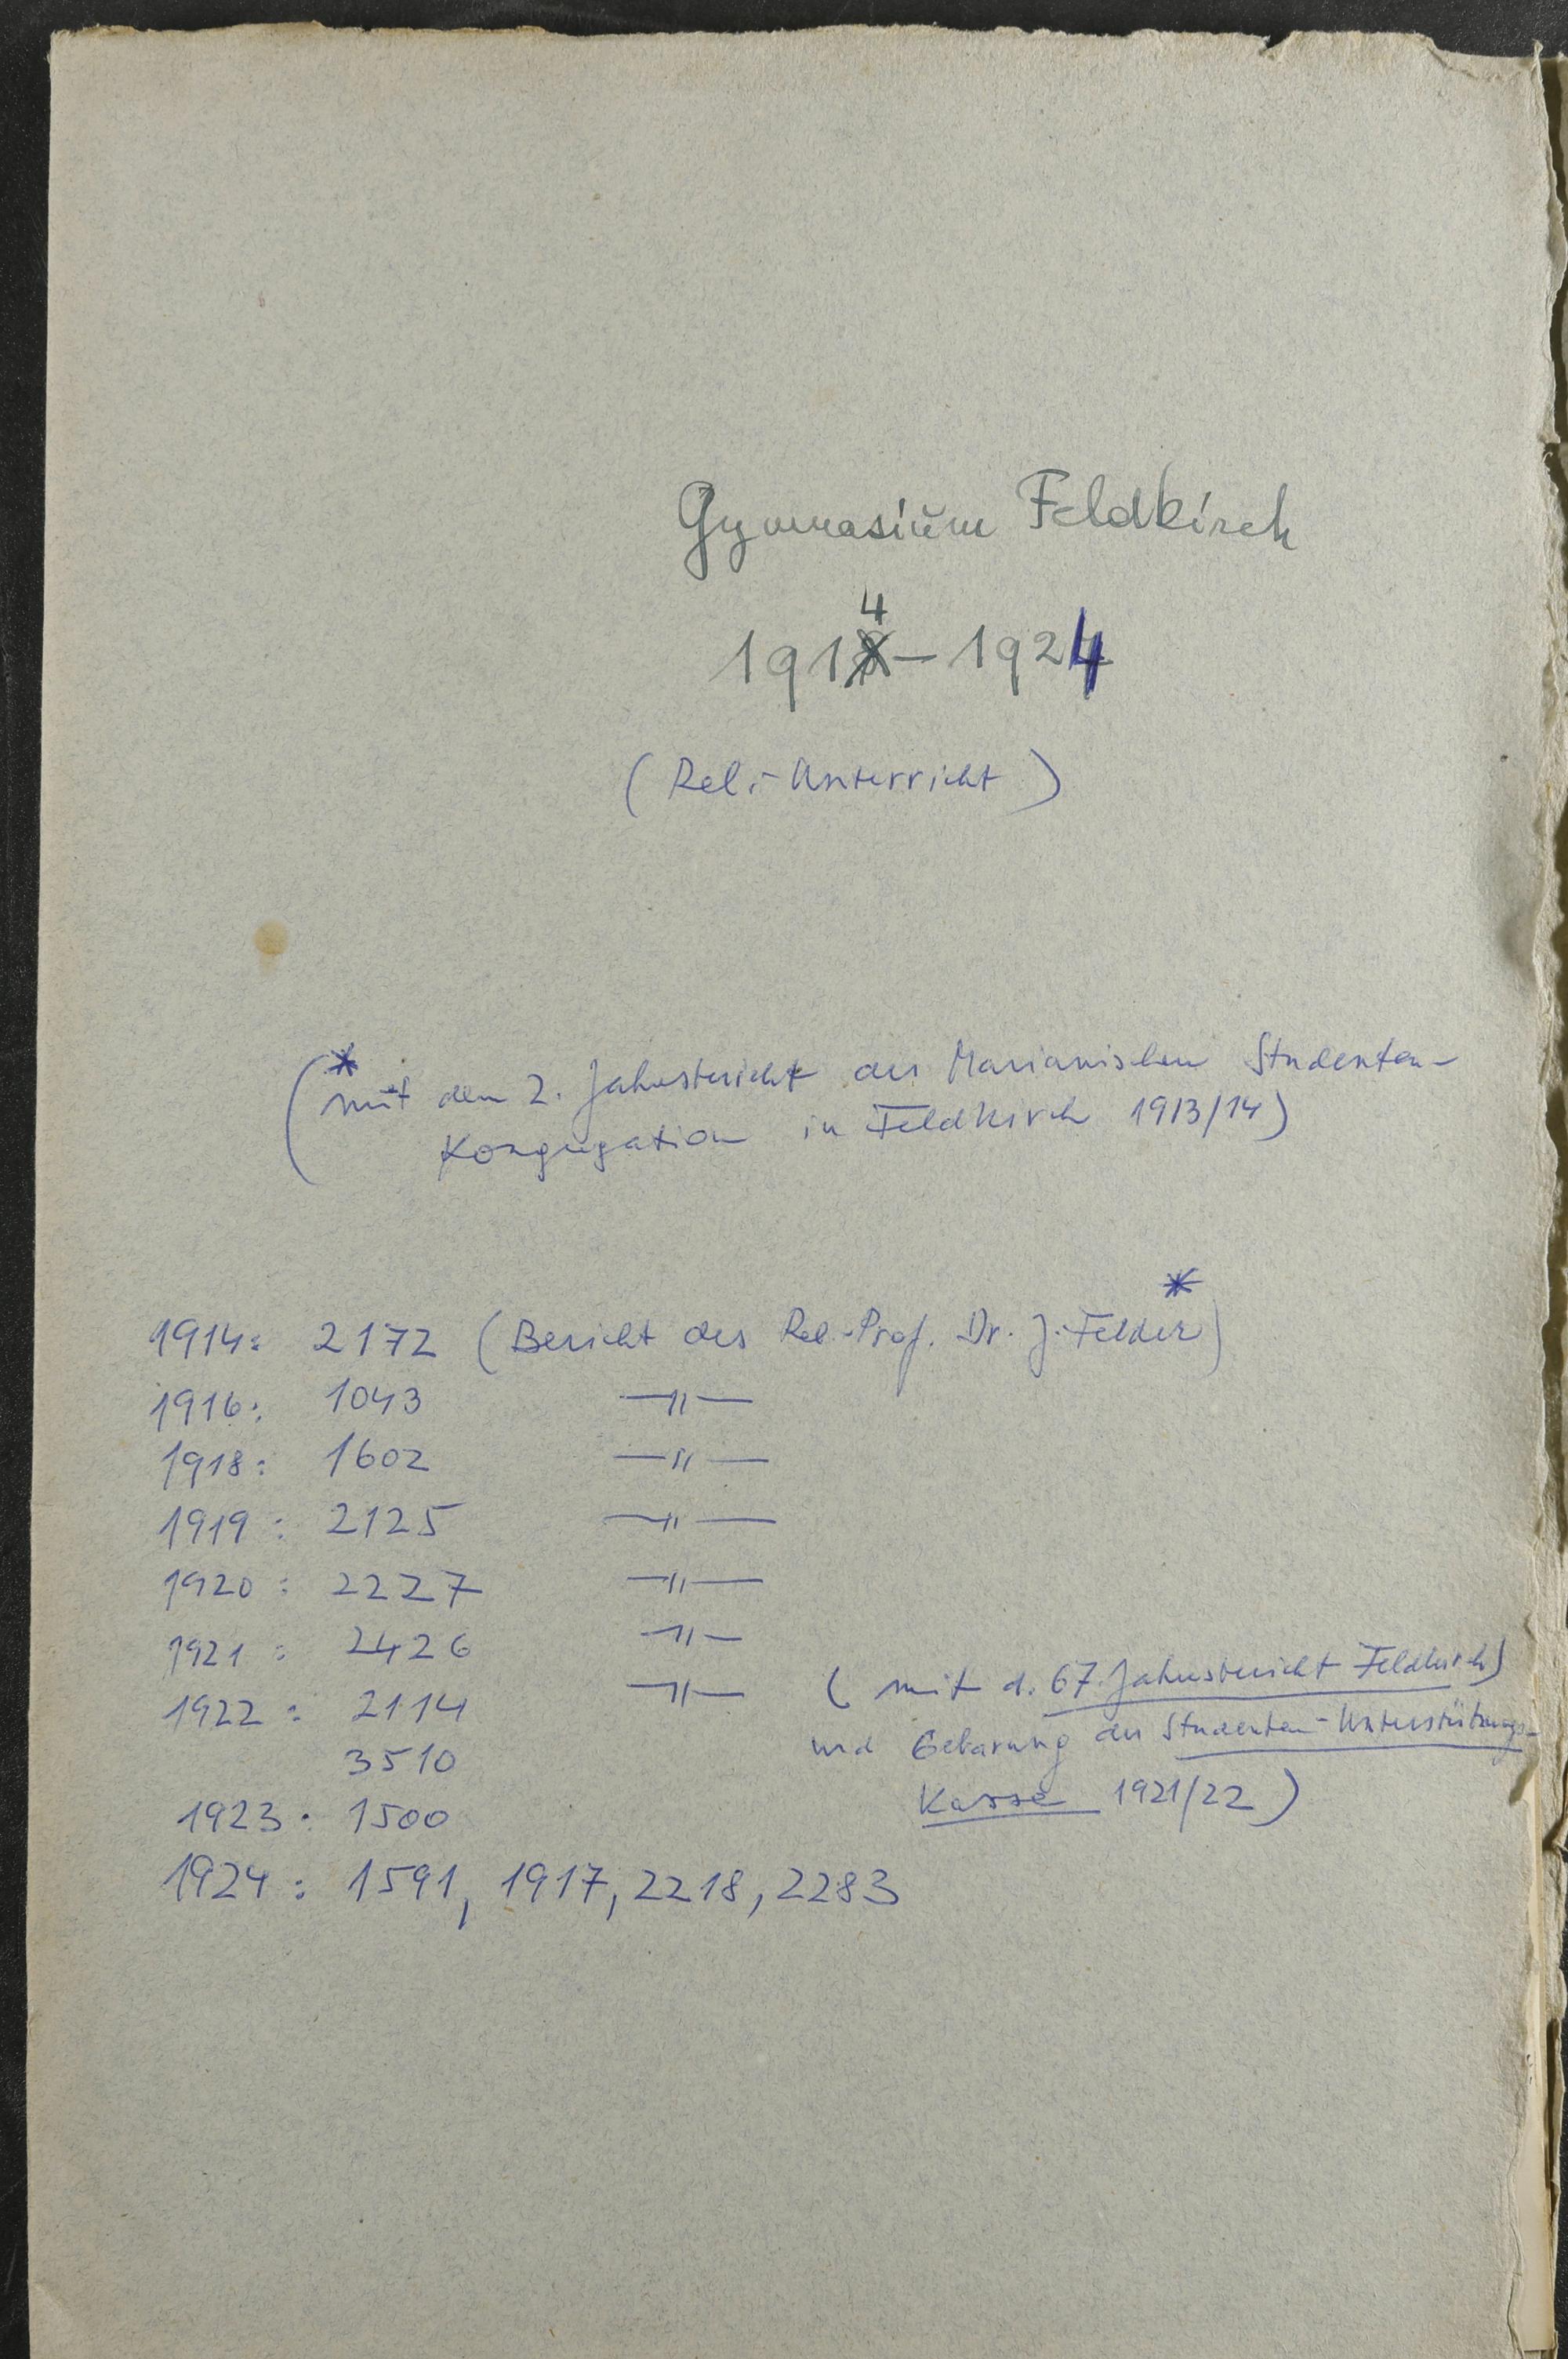 Gymnasium Feldkirch
1914 - 1924
(Rel.-Unterricht)
*
(mit dem 2. Jahresbericht der Marianischen Studenten-
Kongregation in Feldkirch 1913/14)
*
1914: 2172 (Bericht des Rel.-Prof. Dr. J. Felder)
1916: 1043 —"—
1918: 1602 —"—
1919: 2125 —"—
1920: 2227 —"—
1921: 2426 —"—
1922: 2114 —"— (mit d. 67. Jahresbericht Feldkirch)
3510 und Gebarung der Studenten-Unterstützungs-
1923: 1500 Kasse 1921/22)
1924: 1591, 1917, 2218, 2283